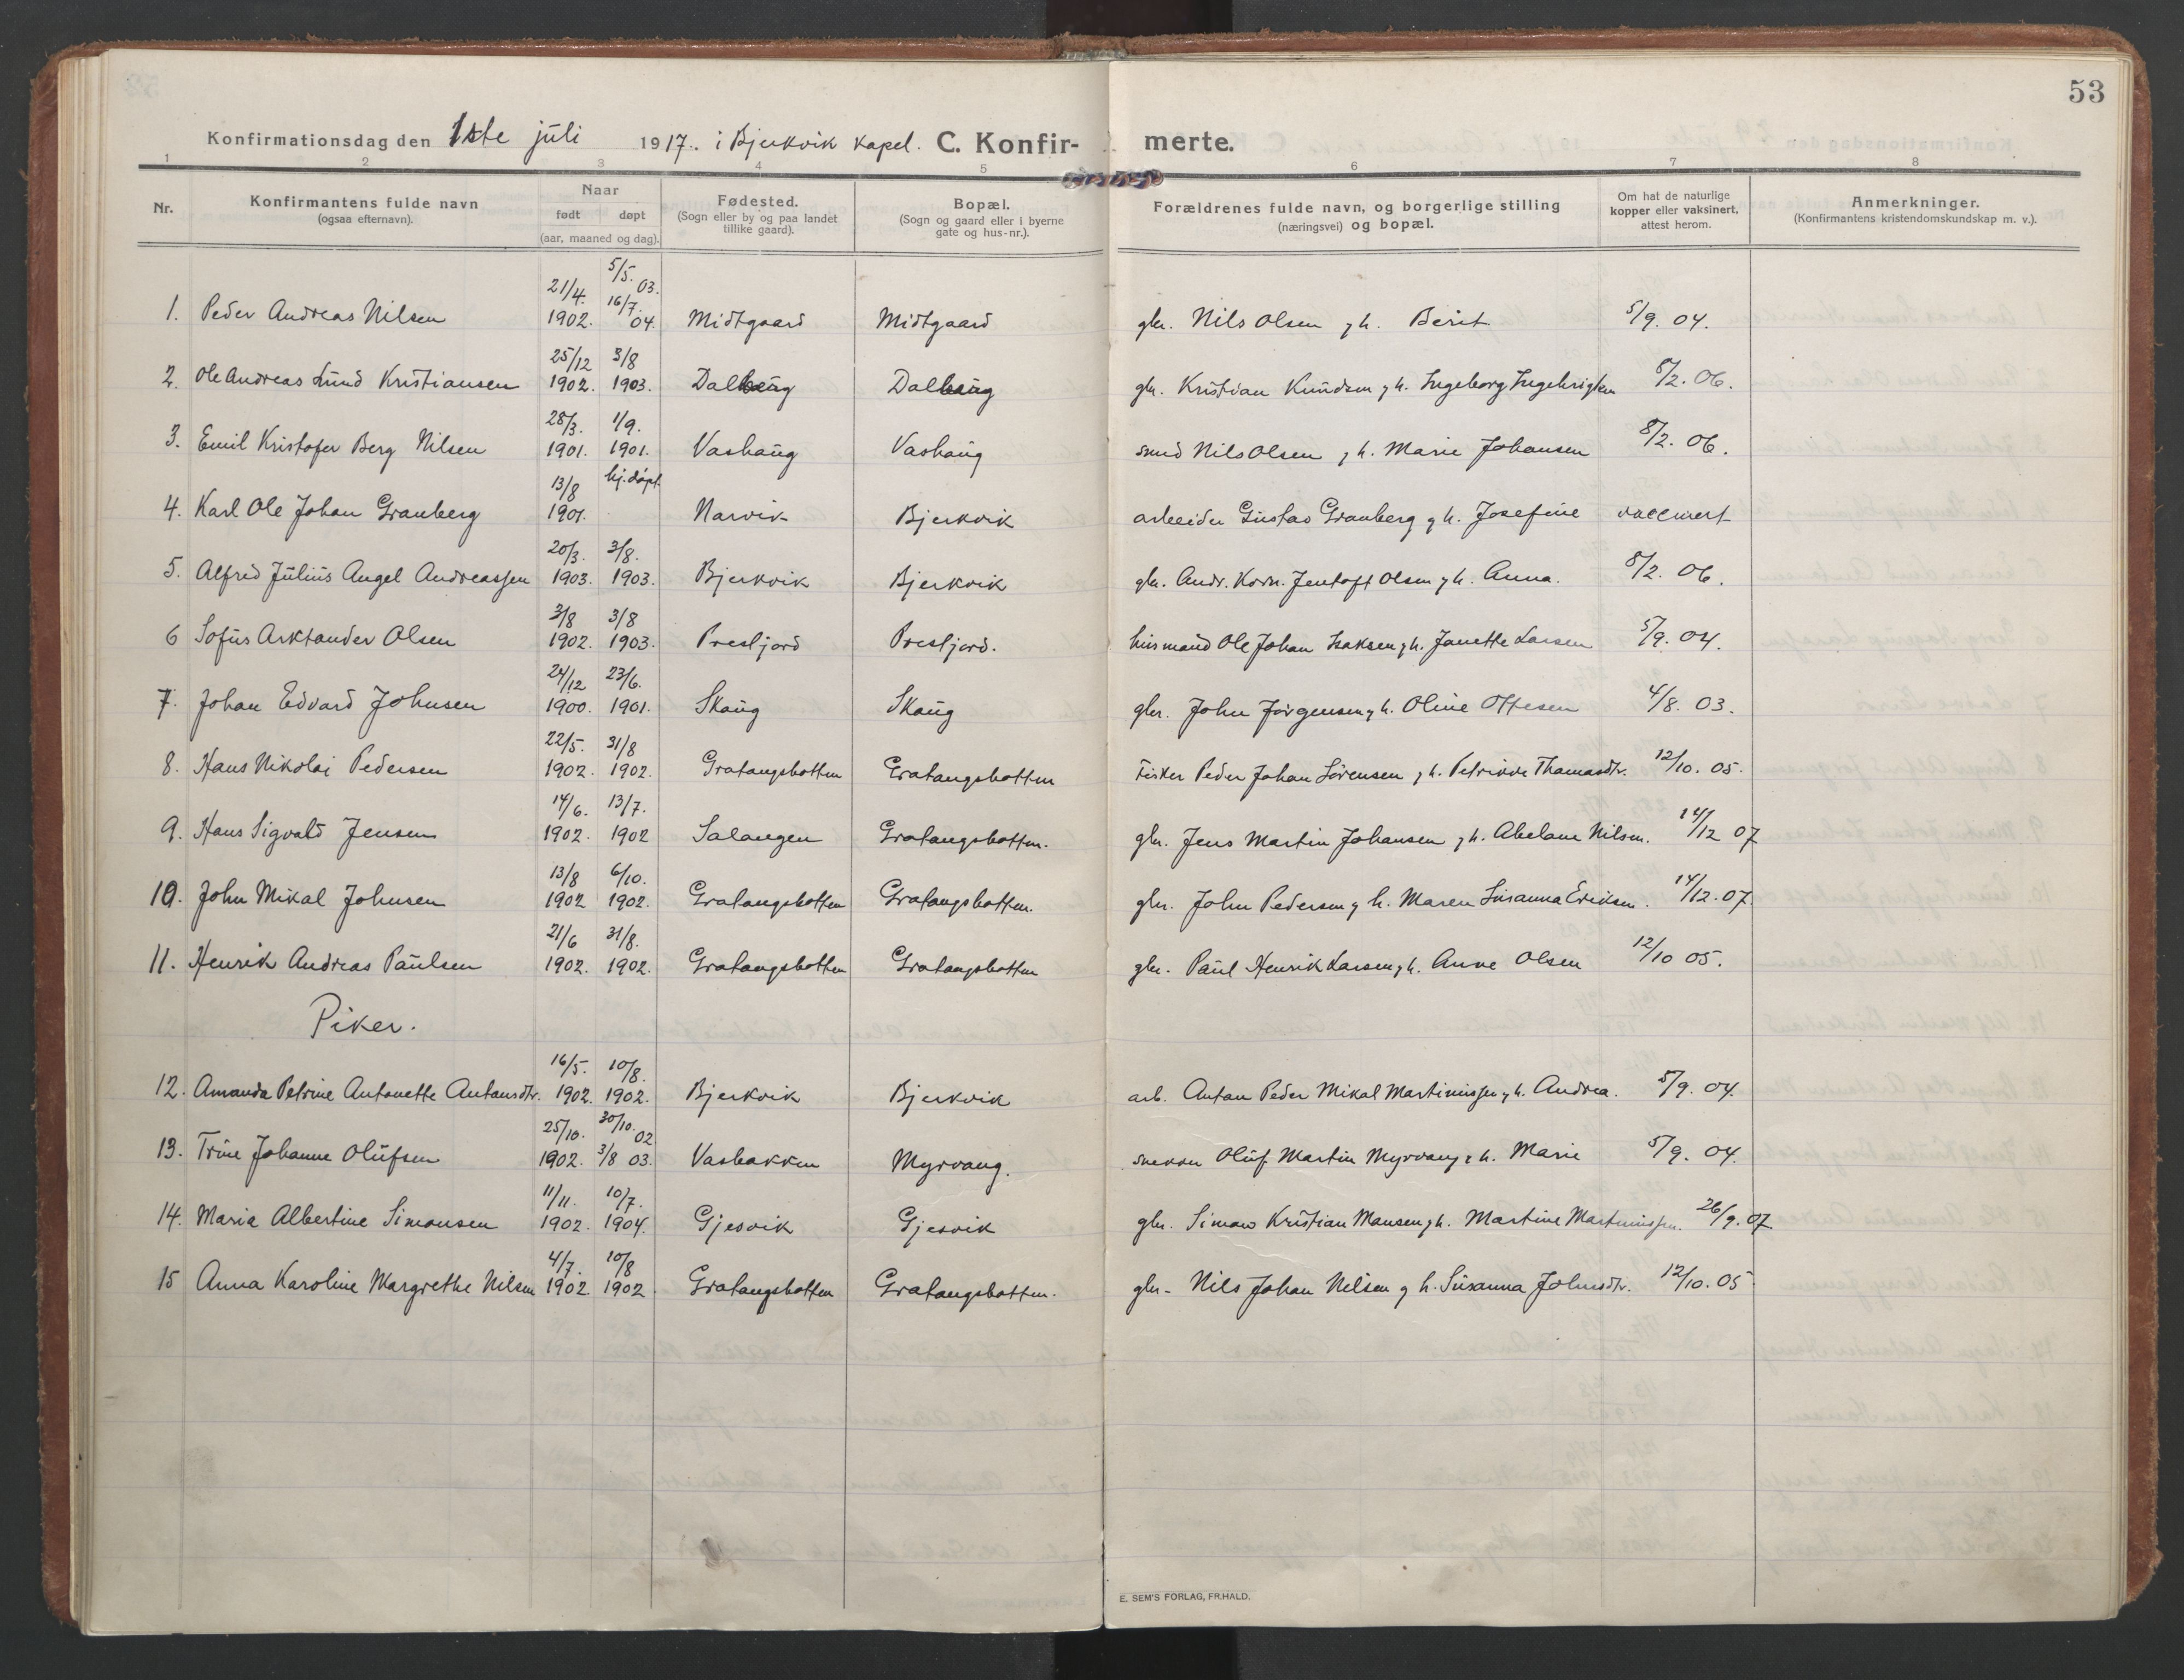 53
Konfirmationsdag den 1ste juli 1917. i Bjerkvik kapel. C. Konfirmerte.
1 2 3 4 5 6 7 8
Nr. Konfirmantens fulde navn (ogsaa efternavn). Naar født døpt (aar, maaned og dag). Fødested. (Sogn eller by og paa landet tillike gaard). Bopæl. (Sogn og gaard eller i byerne gate og hus-nr.). Forældrenes fulde navn, og borgerlige stilling (næringsvei) og bopæl. Om hat de naturlige kopper eller vaksinert, attest herom. Anmerkninger. (Konfirmantens kristendomskundskap m. v.).
1. Peder Andreas Nilsen 21/4. 1902. 5/5. 03. 16/7. 04. Midtgaard Midtgaard gbr. Nils Olsen g h. Berit 5/9. 04.
2. Ole Andreas Lund Kristiansen 25/12 1902. 3/8 1903. Dalhaug Dalhaug gbr. Kristian Knudsen g h. Ingeborg Ingebrigtsen 8/2. 06.
3. Emil Kristofer Berg Nilsen 28/3. 1901. 1/9. 1901. Vashaug Vashaug smed Nils Olsen g h. Marie Johansen 8/2. 06.
4. Karl Ole Johan Granberg 13/8 1901. hj.døpt Narvik Bjerkvik arbeider Gustav Granberg g h. Josefine vaccinert
5. Alfred Julius Angel Andreassen 20/3. 1903. 3/8. 1903. Bjerkvik Bjerkvik gbr. Andr. Korn. Jentoft Olsen g h. Anna. 8/2. 06.
6 Sofus Arktander Olsen 3/8 1902. 3/8 1903. Prestjord Prestjord. husmand Ole Johan Isaksen g h. Janette Larsen 5/9. 04.
7. Johan Edvard Johnsen 24/12 1900. 23/6. 1901. Skaug Skaug gbr. John Jørgensen g h. Oline Ottesen 4/8. 03.
8. Hans Nikolai Pedersen 22/5. 1902. 31/8 1902. Gratangsbotten Gratangsbotten Fisker Peder Johan Sørensen g h. Petrikke Thomasdtr. 12/10. 05.
9. Hans Sigvald Jensen 14/6. 1902. 13/7. 1902 Salangen Gratangsbotten. gbr. Jens Martin Johansen g h. Abelone Nilsen. 14/12 07
10. John Mikal Johnsen 13/8 1902 6/10. 1902. Gratangsbotten Gratangsbotten. gbr. John Pedersen g h. Maren Susanna Eriksen. 14/12. 07.
11. Henrik Andreas Paulsen 21/6 1902. 31/8. 1902. Gratangsbotten Gratangsbotten gbr. Paul Henrik Larsen g h. Anne Olsen 12/10 05.
Piker.
12. Amanda Petrine Antonette Antonsdtr. 16/5. 1902. 10/8. 1902. Bjerkvik Bjerkvik arb. Anton Peder Mikal Martinussen g h. Andrea. 5/9. 04.
13. Trine Johanne Olufsen 25/10. 1902. 30/10. 02 3/8 03. Vasbakken Myrvang. snekker Oluf Martin Myrvang g h. Marie 5/9. 04.
14. Maria Albertine Simonsen 11/11. 1902. 10/7. 1904. Gjesvik Gjesvik gbr. Simon Kristian Monsen g h. Martine Martinussen. 26/9. 07.
15 Anna Karoline Margrethe Nilsen 4/7. 1902 10/8 1902. Gratangsbotten Gratangsbotten. gbr. Nils Johan Nilsen g h. Susanna Johnsdtr. 12/10. 05
E. SEM'S FORLAG, FR.HALD.